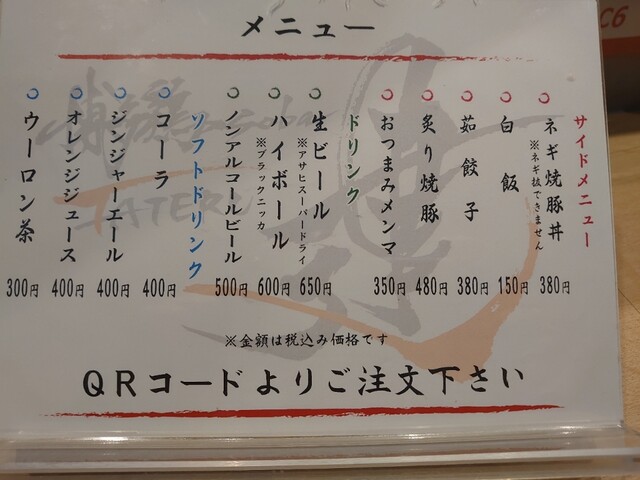 メニュー
サイドメニュー
ネギ焼豚丼
※ネギ抜できません
380円
白飯
150円
茹餃子
380円
炙り焼豚
480円
おつまみメンマ
350円
ドリンク
生ビール
※アサヒスーパードライ
650円
ハイボール
※ブラックニッカ
600円
ノンアルコールビール
500円
ソフトドリンク
コーラ
400円
ジンジャーエール
400円
オレンジジュース
400円
ウーロン茶
300円
※金額は税込み価格です
QRコードよりご注文下さい
C6